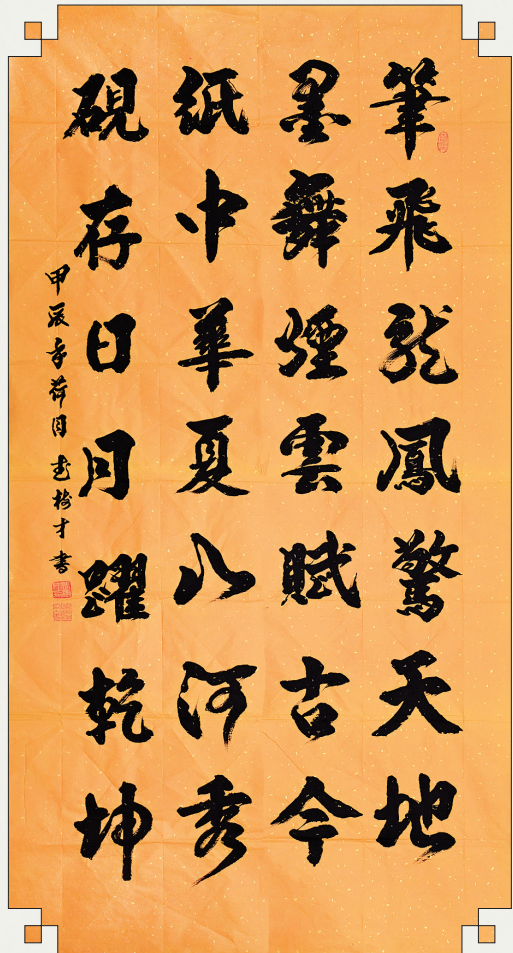 筆飛龍鳳驚天地
墨舞煙雲賦古今
紙中華夏山河秀
硯存日月躍乾坤
甲辰年荷月武梅才書